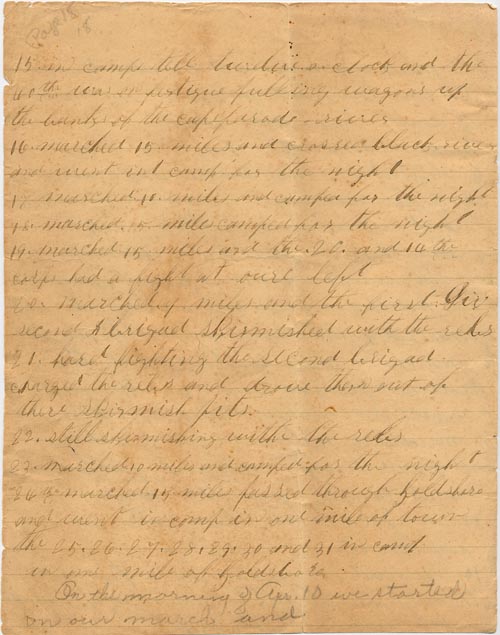 Page 15
18
15 in camp till twelve o clock and the
40th was on fatigue pulling wagons up
the bank of the capeparade river
16. marched 15 miles and crossed black river
and went int camp for the night
17 marched 10 miles and camped for the night
18. marched 15 miles camped for the night
19. marched 15 miles and the 20. and 14 the
corps had a fight at oure left
20. marched 9 miles and the first Div
second brigad skirmished with the rebs
21. hard fighting the second brigad
charged the rebs and drove them out of
there skirmish pits.
22. still skirmishing withe the rebs
23. marched 10 miles and camped for the night
24 marched 15 miles passed through goldsboro
and went in camp in one mile of town
the 25. 26. 27. 28. 29. 30 and 31 in camp
in one mile of goldsboro
On the morning of Apr. 10 we started
on our march and